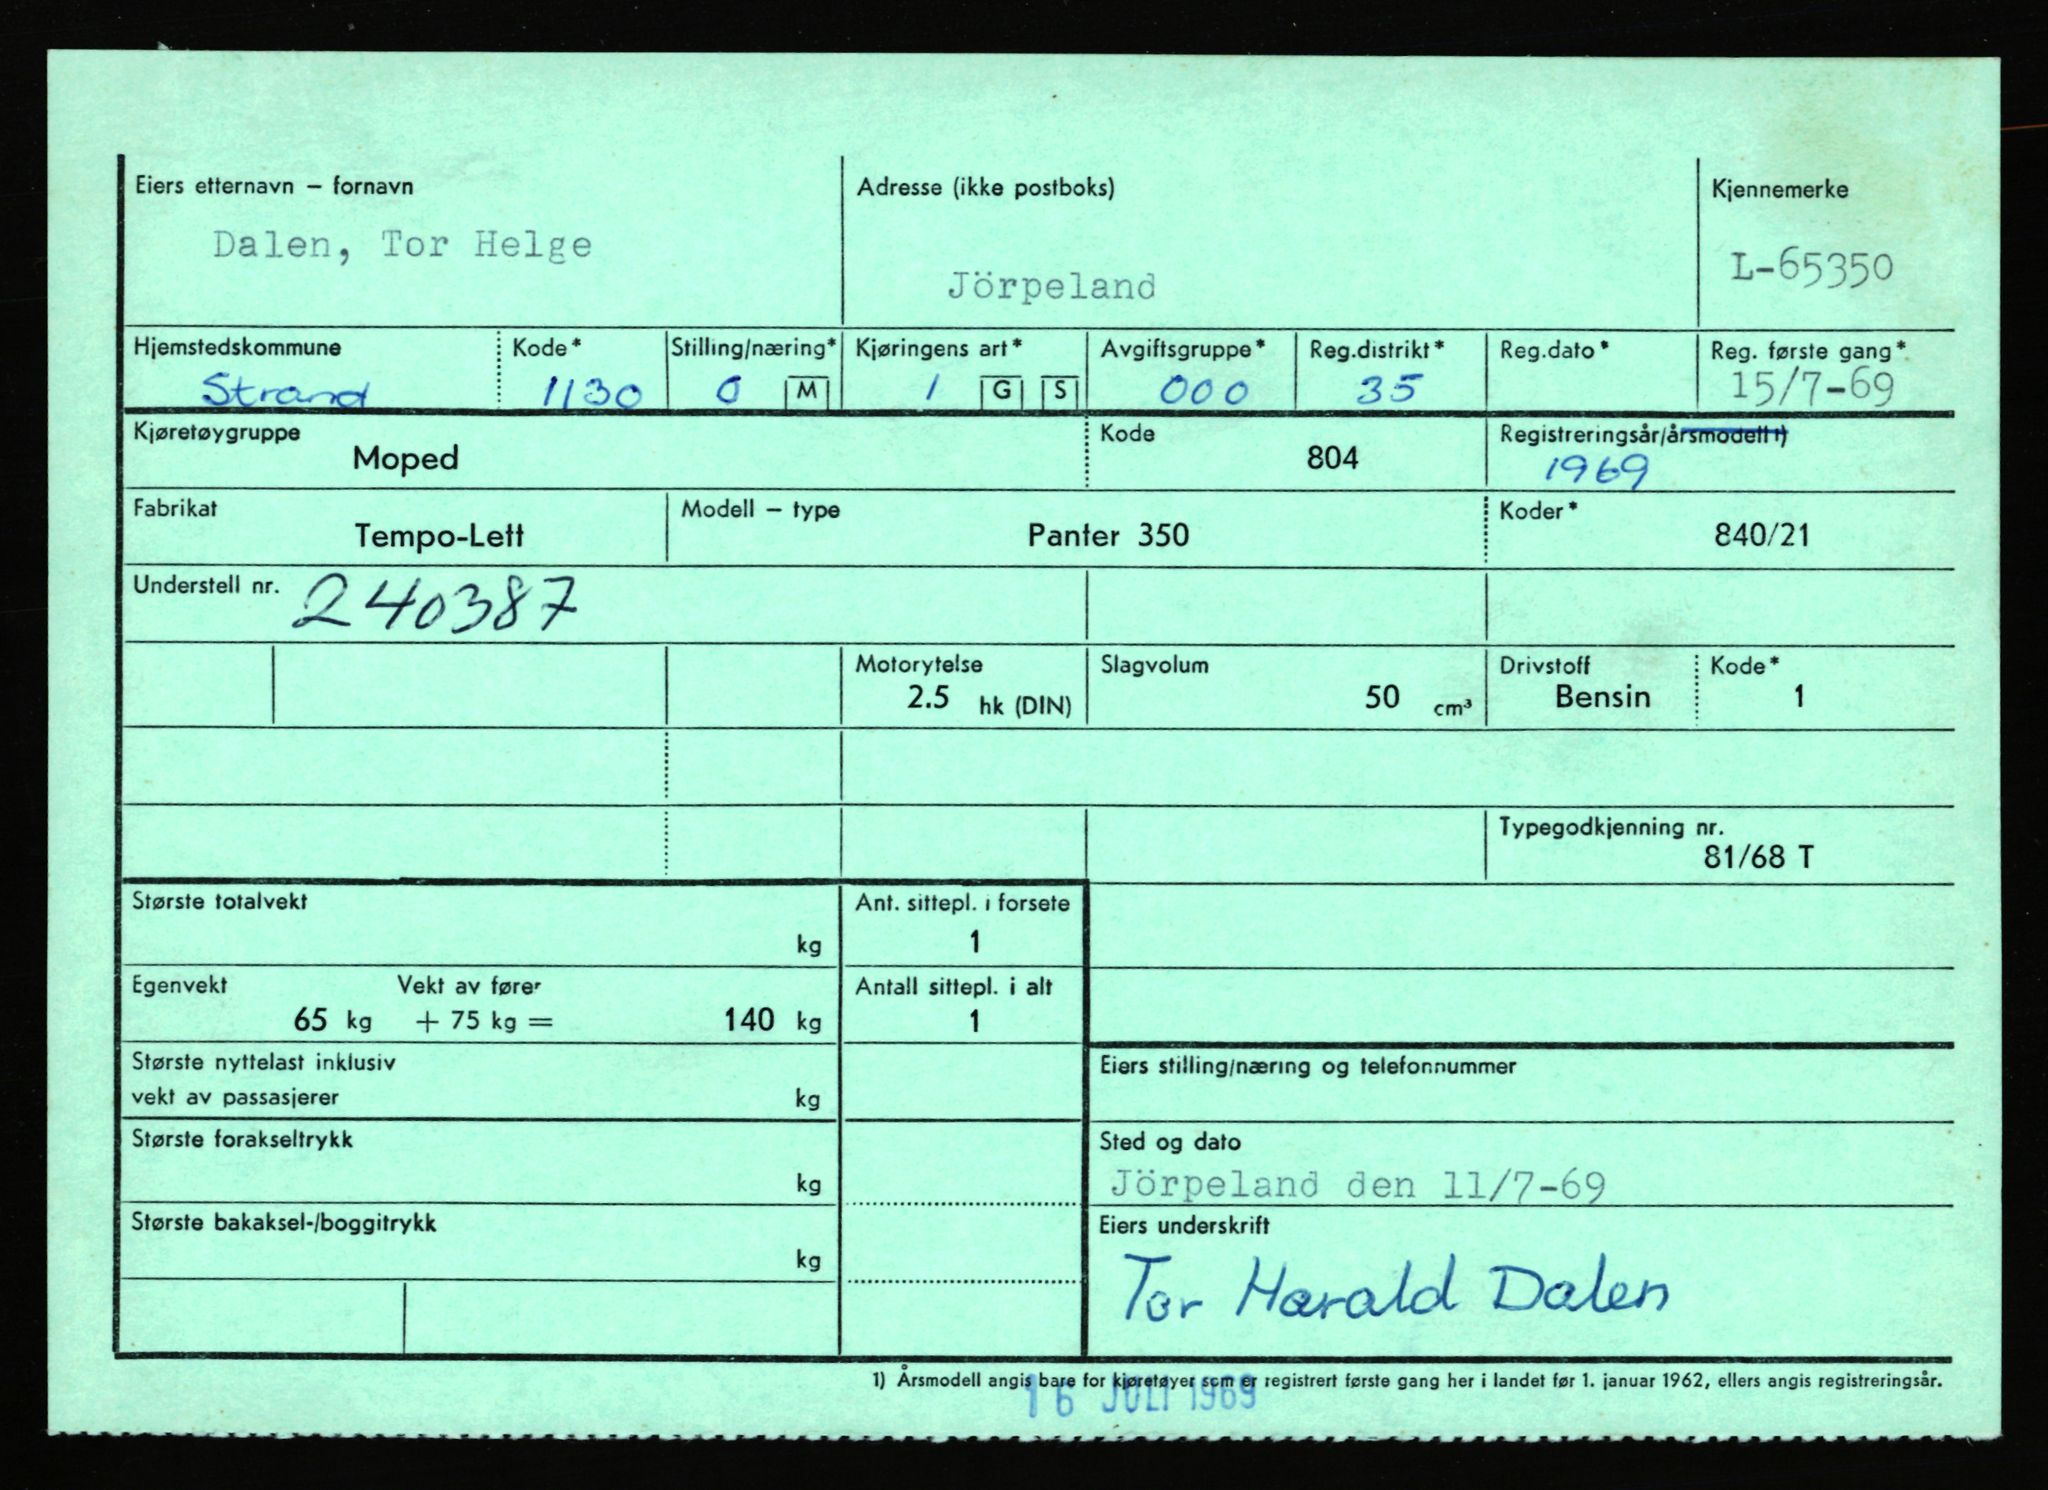 Eiers etternavn – fornavn Adresse (ikke postboks) Kjennemerke
Dalen, Tor Helge Jörpeland L-65350
Hjemstedskommune Kode* Stilling/næring* Kjøringens art* Avgiftsgruppe* Reg.distrikt* Reg.dato* Reg. første gang*
Strand 1130 0 M 1 G S 000 35 15/7-69
Kjøretøygruppe Kode Registreringsår/årsmodell 1)
Moped 804 1969
Fabrikat Modell – type Koder*
Tempo-Lett Panter 350 840/21
Understell nr. 240387
Motorytelse Slagvolum Drivstoff Kode*
2.5 hk (DIN) 50 cm³ Bensin 1
Typegodkjenning nr.
81/68 T
Største totalvekt Ant. sittepl. i forsete
kg 1
Egenvekt Vekt av fører Antall sittepl. i alt
65 kg + 75 kg = 140 kg 1
Største nyttelast inklusiv
vekt av passasjerer kg
Eiers stilling/næring og telefonnummer
Største forakseltrykk Sted og dato
kg Jörpeland den 11/7-69
Største bakaksel-/boggitrykk Eiers underskrift
kg Tor Harald Dalen
1) Årsmodell angis bare for kjøretøyer som er registrert første gang her i landet før 1. januar 1962, ellers angis registreringsår.
16 JULI 1969